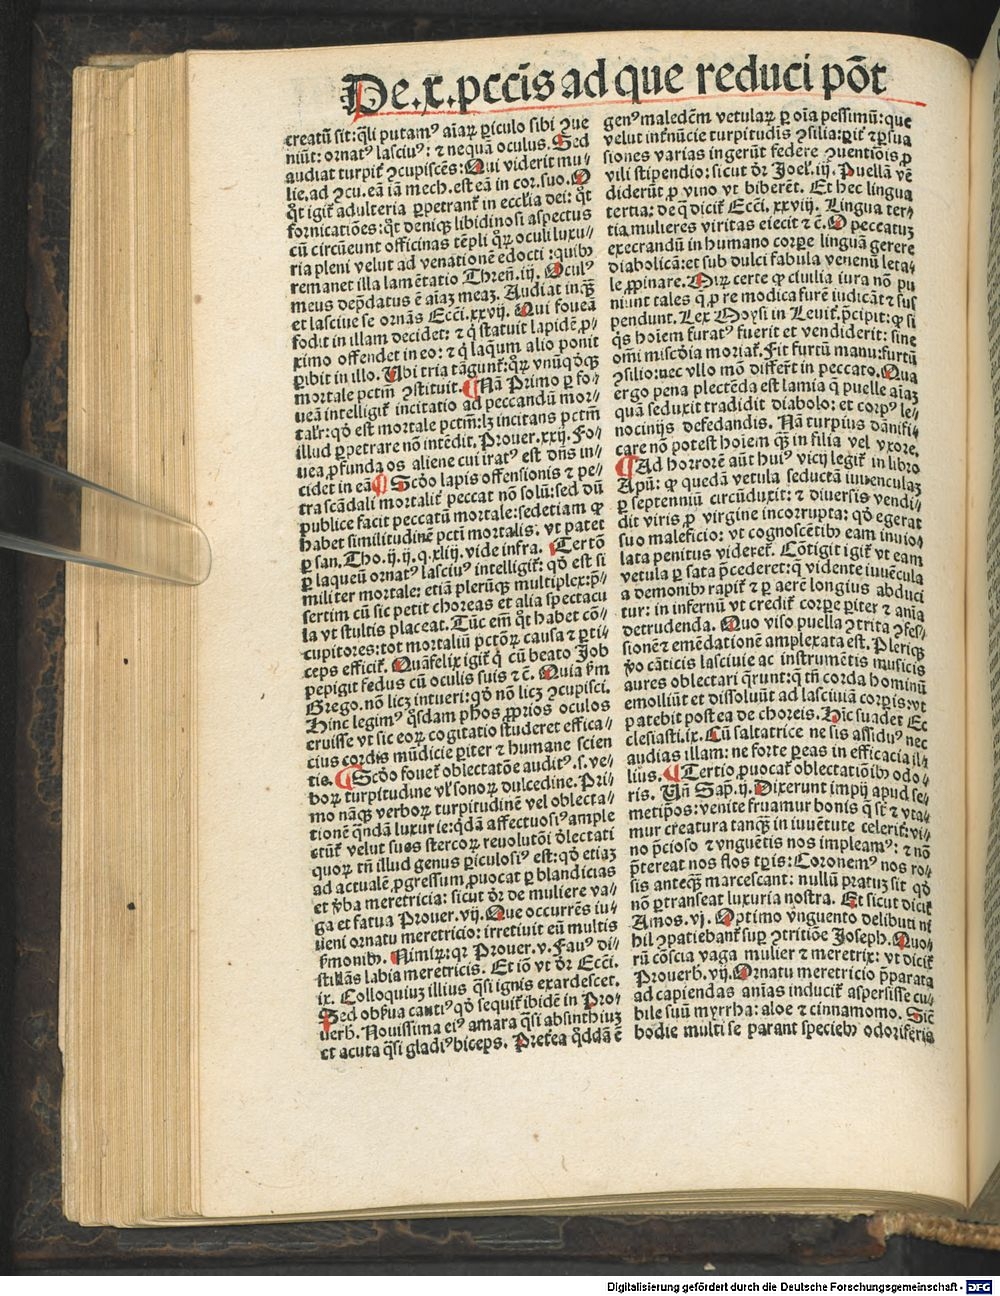 De.x.pccīs ad que reduci põt
creatū sit:q̄li putamꝰ aīaꝝ ꝑiculo sibi ꝯue
niūt: ornatꝰ lasciuꝰ: ⁊ nequā oculus. Sed
audiat turpiť ꝯcupiscēs: Qui viderit mu⸗
lie. ad ꝯcu. eā iā mech. est eā in cor. suo. O
q̊t igiť adulteria ꝑpetranť in eccľia dei: q̊t
fornicatiōes: q̊t deniqꝫ libidinosi aspectus
cū circūeunt officinas tēpli qꝛ oculi luxu⸗
ria pleni velut ad venationē edocti: quibꝰ
remanet illa lamētatio Threñ. iij. Oculꝰ
meus dep̄datus ē aīaꝫ meaꝫ. Audiat inqꝫ
et lasciue se ornās Ecci. xxvij. Qui foueā
fodit in illam decidet: ⁊ q̇ statuit lapidē ꝓ⸗
ximo offendet in eo: ⁊ q̇ laqum alio ponit
ꝑibit in illo. Ubi tria tāgunť: qꝛ vnūqḋqꝫ
mortale pctm̄ ꝯstituit. ¶ Nā Primo ꝑ fo⸗
ueā intelligiť incitatio ad peccandū mor⸗
taľr: qḋ est mortale pctm̄: lꝫ incitans pctm̄
illud ꝑpetrare nō intēdit. Prouer. xxij. Fo⸗
uea ꝓfunda os aliene cui iratꝰ est dn̄s in⸗
cidet in eā ¶ Scḋo lapis offensionis ⁊ pe⸗
tra scādali mortaliť peccat nō solū: sed dū
publice facit peccatū mortale: sed etiam ꝙ
habet similitudinē pcti mortalis. vt patet
ꝑ san. Tho. ij. ij. q. xliij. vide infra. Tertō
ꝑ laqueū ornatꝰ lasciuꝰ intelligiť: qḋ est si
militer mortale: etiā plerūqꝫ multiplex: p̄⸗
sertim cū sic petit choreas et alia spectacu
la vt stultis placeat. Tūc em̄ q̊t habet cō⸗
cupitores: tot mortaliū pctōꝝ causa ⁊ ꝑti⸗
ceps efficiť. Quāfelix igiť q̇ cū beato Job
pepigit fedus cū oculis suis ⁊ c̄. Quia ẜm
Grego. nō licꝫ intueri: qḋ nō licꝫ ꝯcupisci.
Hinc legimꝰ q̊sdam phos ꝓprios oculos
eruisse vt sic eoꝝ cogitatio studeret effica⸗
cius cordis mūdicie ꝑiter ⁊ humane scien
tie. ¶ Scḋo foueť oblectatōe auditꝰ. s. ve⸗
boꝝ turpitudine vľ sonoꝝ dulcedine. Pri⸗
mo nāqꝫ verboꝝ turpitudinē vel oblecta⸗
tionē q̄ndā luxurie: q̄dā affectuosiꝰ ample
ctūť velut sues stercoꝝ reuolutōi ḋlectati
quoꝝ tn̄ illud genus ꝑiculosiꝰ est: qḋ etiaꝫ
ad actualē ꝓgressum ꝓuocat ꝑ blandicias
et ꝟba meretricia: sicut ḋr de muliere va⸗
ga et fatua Prouer. vij. Que occurrēs iu⸗
ueni ornatu meretricio: irretiuit eū multis
ẜmonibꝰ. Nimiꝝ: qꝛ Prouer. v. Fauꝰ di⸗
stillās labia meretricis. Et iō vt ḋr Ecci.
ix. Colloquiuꝫ illius q̄si ignis exardescet.
Sed obẜua cautiꝰ qḋ sequiť ibidē in Pro⸗
uerb. Nouissima eiꝰ amara q̄si absinthiuꝫ
et acuta q̄si gladiꝰ biceps. Preťea q̊ddā ē
genꝰ maledēm vetulaꝝ ꝑ oīa pessimū: que
velut inťnūcie turpitudīs ꝯsilia: ꝑiť ⁊ ꝑsua
siones varias ingerūt federe ꝯuentiōis ꝓ
vili stipendio: sicut ḋr Joel. iij. Puellā vē
diderūt ꝓ vino vt biberēt. Et hec lingua
tertia: de q̄ diciť Ecci. xxviij. Lingua ter⸗
tia mulieres viritas eiecit ⁊ c̄. O peccatuꝫ
execrandū in humano corpe linguā gerere
diabolicā: et sub dulci fabula venenū leta⸗
le ꝓpinare. Miꝝ certe ꝙ ciuilia iura nō pu
niunt tales q̇ ꝑ re modica furē iudicāt ⁊ sus
pendunt. Lex Moysi in Leuiť. p̄cipit: ꝙ si
q̇s hoīem furatꝰ fuerit et vendiderit: sine
om̄i misc̄dia moriať. Fit furtū manu: furtū
ꝯsilio: nec vllo mō differt in peccato. Qua
ergo pena plectēda est lamia q̄ puelle aīaꝫ
quā seduxit tradidit diabolo: et corpꝰ le⸗
nocinijs defedandis. Nā turpius dānifi⸗
care nō potest hoīem qꝫ in filia vel vxore.
¶ Ad horrorē aūt huiꝰ vicij legiť in libro
Apū: ꝙ quedā vetula seductā iuuenculaꝫ
ꝑ septenniū circūduxit: ⁊ diuersis vendi⸗
dit viris ꝓ virgine incorrupta: qḋ egerat
suo maleficio: vt cognoscētibꝰ eam inuio⸗
lata penitus videreť. Cōtigit igiť vt eam
vetula ꝑ sata p̄cederet: q̄ vidente iuuēcula
a demonibꝰ rapiť ⁊ ꝑ aerē longius abduci
tur: in infernū vt crediť corpe ꝑiter ⁊ aīa
detrudenda. Quo viso puella ꝯtrita ꝯfes⸗
sionē ⁊ emēdationē amplexata est. Pleriqꝫ
ꝟo cāticis lasciuie ac instrumētis musicis
aures oblectari q̄runt: q̄ tn̄ corda hominū
emolliūt et dissoluūt ad lasciuiā corpis: vt
patebit postea de choreis. Hic suadet Ec
clesiasti. ix. Cū saltatrice ne sis assiduꝰ nec
audias illam: ne forte ꝑeas in efficacia il⸗
lius. ¶ Tertio ꝓuocať oblectatiōibꝰ odo⸗
ris. Vn̄ Sap. ij. Dixerunt impij apud se⸗
metip̄os: venite fruamur bonis q̄ sť ⁊ vta⸗
mur creatura tanqꝫ in iuuētute celeriť: vi⸗
no p̄cioso ⁊ vnguētis nos impleamꝰ: ⁊ nō
p̄tereat nos flos tp̄is: Coronemꝰ nos ro⸗
sis anteqꝫ marcescant: nullū pratuꝫ sit qḋ
nō ꝑtranseat luxuria nostra. Et sicut diciť
Amos. vj. Optimo vnguento delibuti ni
hil ꝯpatiebanť suꝑ ꝯtritiōe Joseph. Quo⸗
rū cōscia vaga mulier ⁊ meretrix: vt diciť
Prouerb. vij. Ornatu meretricio p̄parata
ad capiendas aīas induciť aspersisse cu⸗
bile suū myrrha: aloe ⁊ cinnamomo. Sic
hodie multi se parant speciebꝰ odoriferis
Digitalisierung gefördert durch die Deutsche Forschungsgemeinschaft - DFG